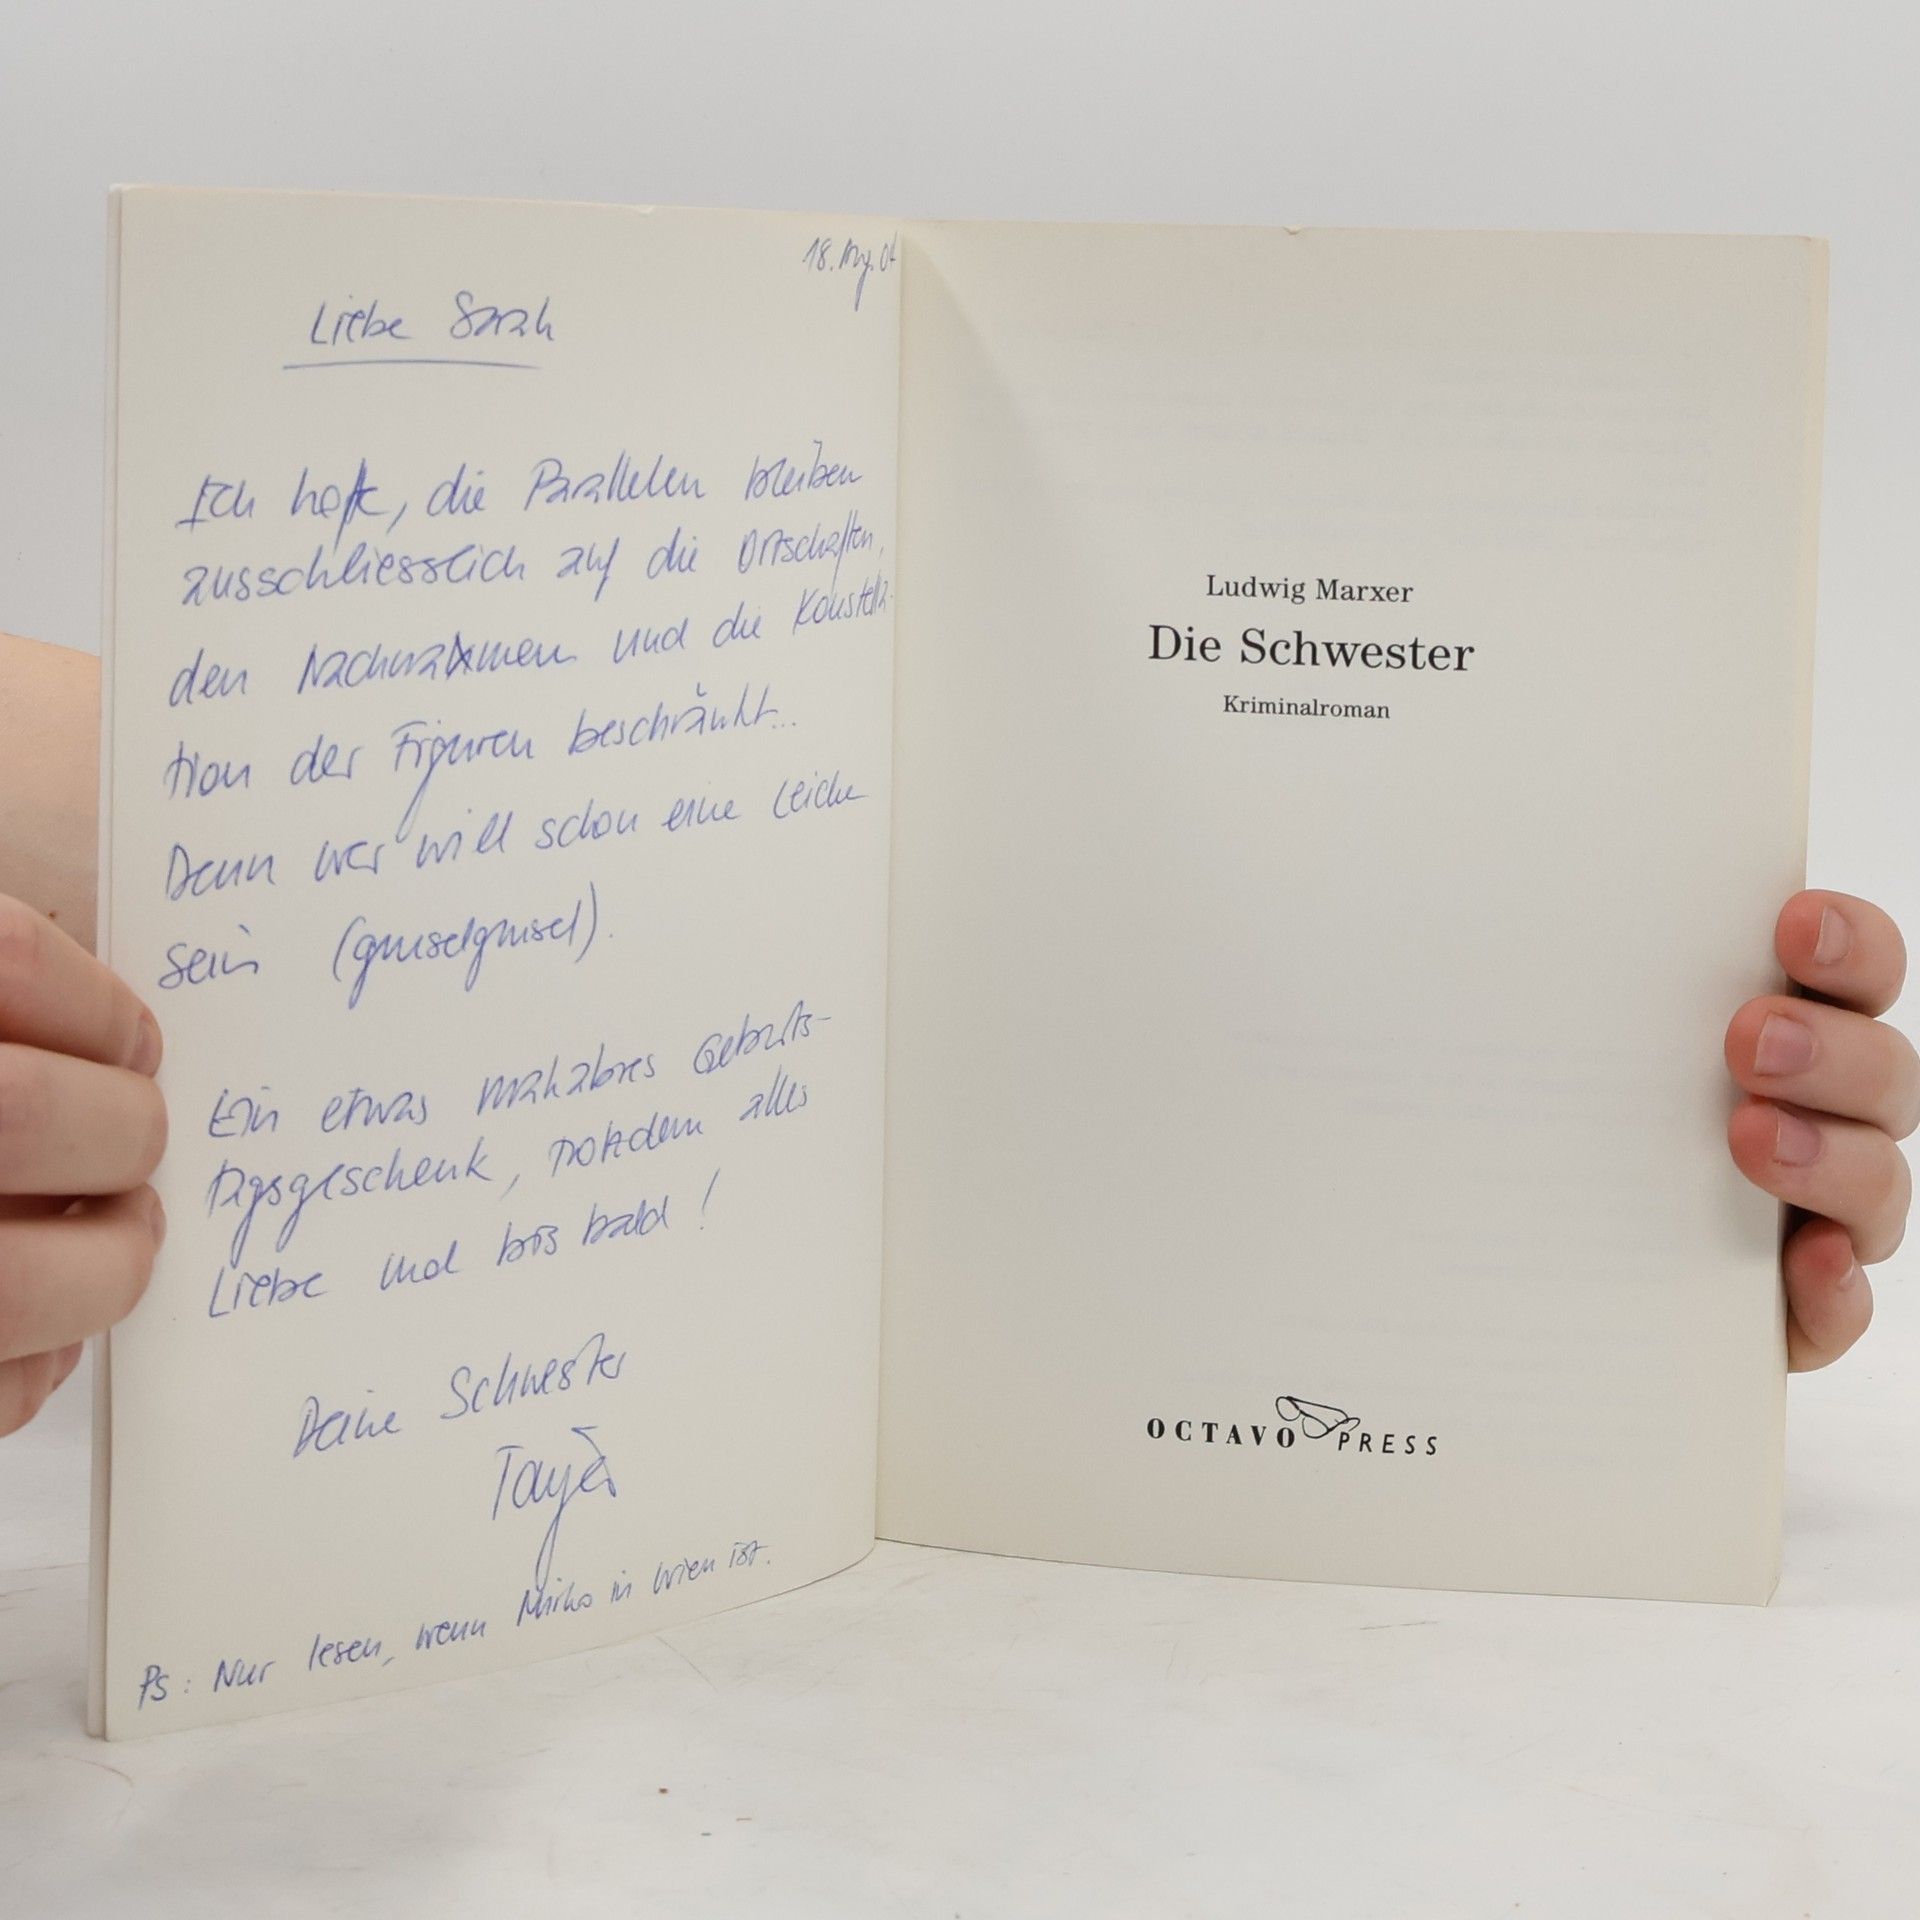 18. Aug. 04
Liebe Sarah
Ich hoffe, die Parallelen bleiben
ausschliesslich auf die Ortschaften,
den Nachnamen und die Konstella-
tion der Figuren beschränkt...
Denn wer will schon eine Leiche
sein (gruselgrusel).
Ein etwas makabres Geburts-
tagsgeschenk, trotzdem alles
Liebe und bis bald!
Deine Schwester
PS: Nur lesen, wenn Mirko in Wien ist.
Ludwig Marxer
Die Schwester
Kriminalroman
OCTAVO PRESS